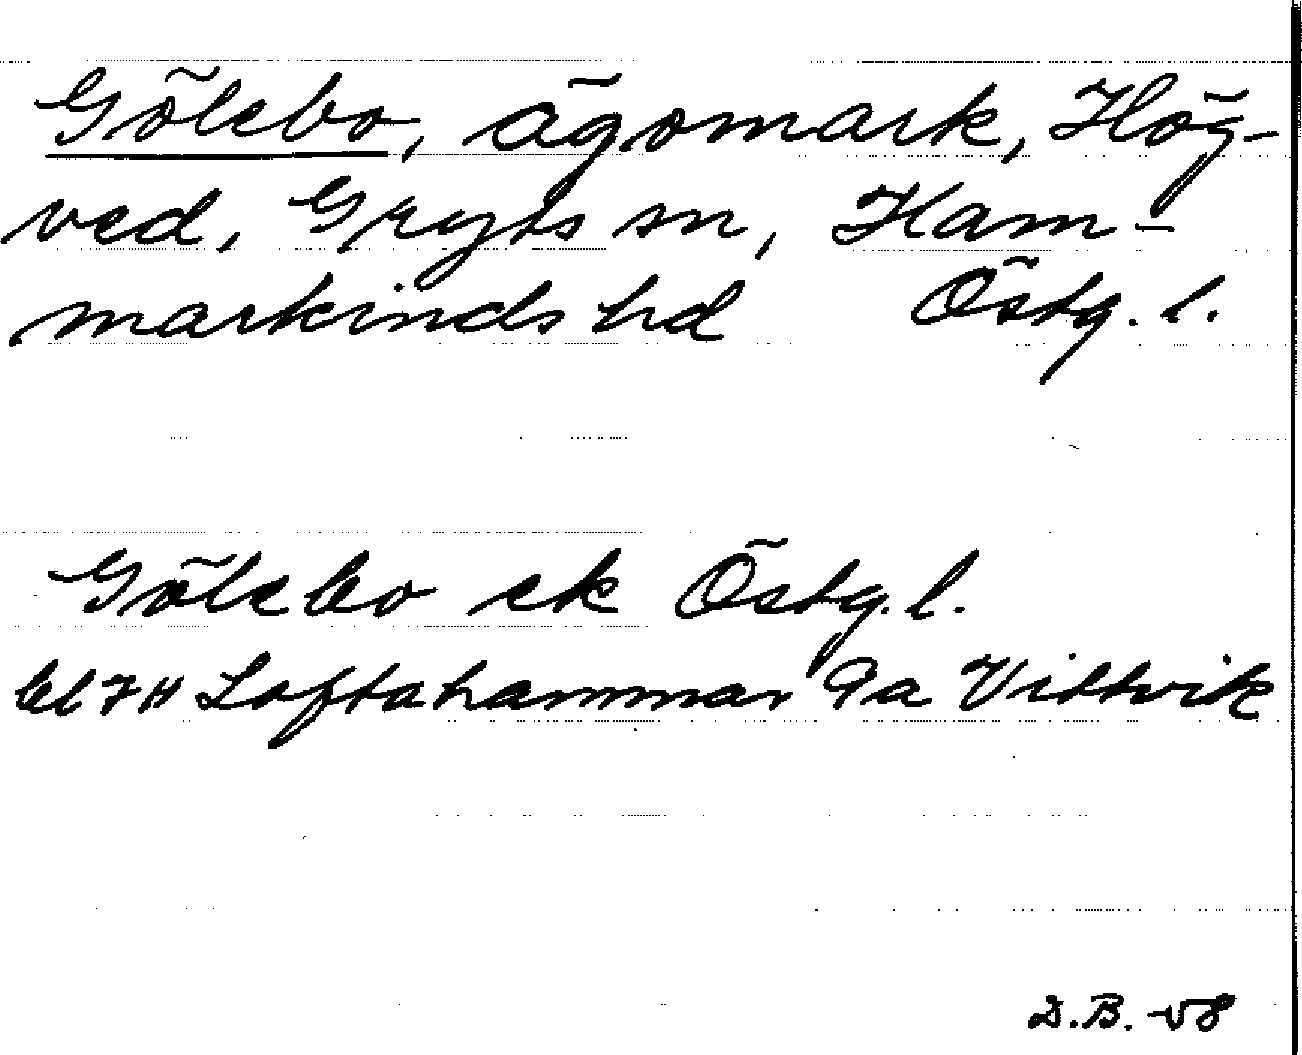 Gölebo, ägomark, Hög-
ved, Gryts sn, Ham-
markinds hd Östg. l.
Gölebo ek Östg. l.
bl 7H Loftahammar 9a Vittvik
D.B. -58